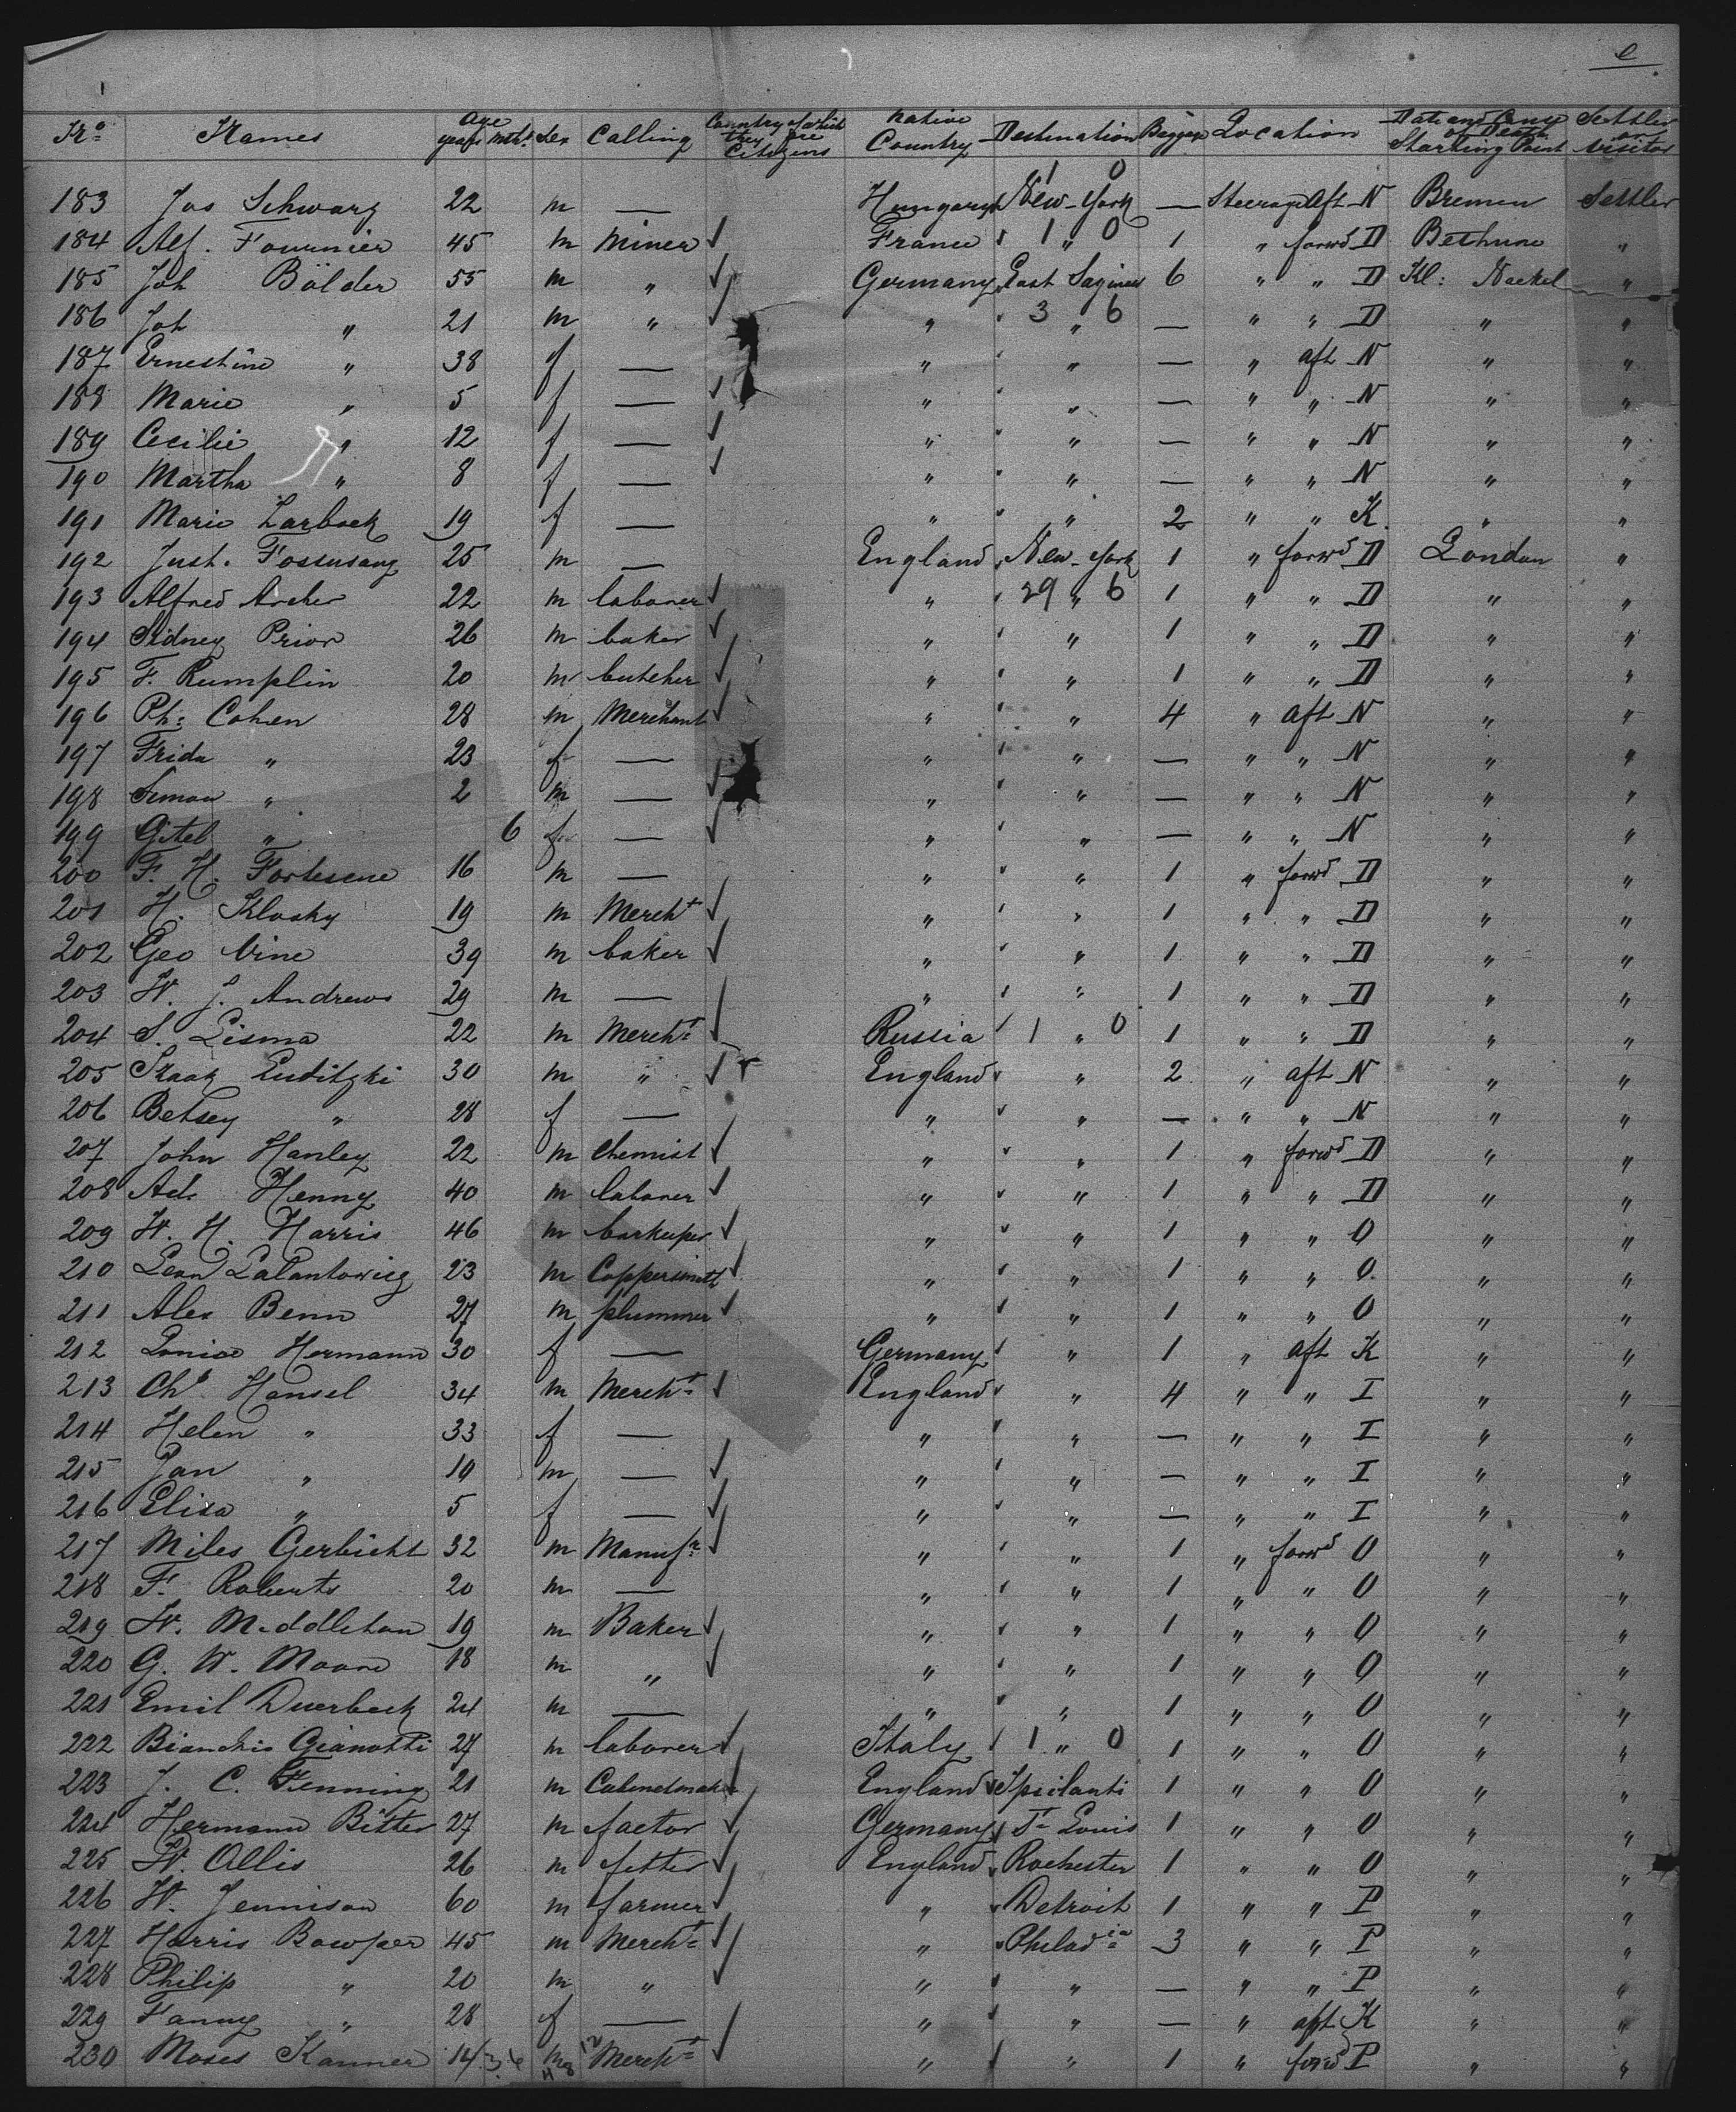 e
No Names Age years Mths Sex Calling Country of which they are Citizens Native Country Destination Baggage Location Date and Cause of Death Starting Point Settler or Visitor
1 0
183 Jos Schwarz 22 m — Hungary New-York — Steerage Aft N Bremen Settler
184 Alf. Fournier 45 m Miner ✓ France 1 " 0 1 " forwd D Bethune "
185 Joh Bölder 55 m " ✓ Germany East Saginaw 6 " " D Kl: Nackel "
186 Joh " 21 m " ✓ " 3 " 6 — " " D " "
187 Ernestine " 38 f — " " — " aft N " "
188 Marie " 5 f — ✓ " " — " " N " "
189 Cecilie " 12 f — ✓ " " — " " N " "
190 Martha " 8 f — ✓ " " — " " N " "
191 Marie Larbock 19 f — " " 2 " " K " "
192 Just. Fossusang 25 m — England New-York 1 " forwd D London "
193 Alfred Archer 22 m laborer ✓ " 29 " 6 1 " " D " "
194 Sidney Prior 26 m baker ✓ " " 1 " " D " "
195 F. Rumplin 20 m butcher ✓ " " 1 " " D " "
196 Ph: Cohen 28 m Merchant ✓ " " 4 " aft N " "
197 Frida " 23 f — " " — " " N " "
198 Simon " 2 m — ✓ " " — " " N " "
199 Gitel " 6 f — ✓ " " — " " N " "
200 F. H. Fortescue 16 m — " " 1 " forwd D " "
201 H. Klosky 19 m Mercht ✓ " " 1 " " D " "
202 Geo Vine 39 m baker ✓ " " 1 " " D " "
203 W. J. Andrews 29 m — " " 1 " " D " "
204 S. Lisma 22 m Mercht ✓ Russia 1 " 0 1 " " D " "
205 Isaak Luditzki 30 m " ✓ England " 2 " aft N " "
206 Betsey " 28 f — " " — " " N " "
207 John Hanley 22 m Chemist ✓ " " 1 " forwd D " "
208 Ad. Henny 40 m laborer ✓ " " 1 " " D " "
209 W. H. Harris 46 m barkeeper ✓ " " 1 " " O " "
210 Leon Lalantowicz 23 m Coppersmith ✓ " " 1 " " O " "
211 Alex Benn 27 m plummer ✓ " " 1 " " O " "
212 Louise Hermann 30 f — Germany " 1 " aft K " "
213 Chs Hansel 34 m Mercht ✓ England " 4 " " I " "
214 Helen " 33 f — " " — " " I " "
215 Jan " 10 m — ✓ " " — " " I " "
216 Elisa " 5 f — ✓ " " — " " I " "
217 Miles Gerbicht 32 m Manufr ✓ " " 1 " forwd O " "
218 F. Roberts 20 m — " " 1 " " O " "
219 W. Middleton 19 m Baker ✓ " " 1 " " O " "
220 G. W. Moore 18 m " ✓ " " 1 " " O " "
221 Emil Duerbeck 24 m — " " 1 " " O " "
222 Bianchio Gianotti 27 m laborer ✓ Italy 1 " 0 1 " " O " "
223 J. C. Fenning 21 m Cabinetmaker ✓ England Ypsilanti 1 " " O " "
224 Hermann Bitter 27 m factor ✓ Germany St Louis 1 " " O " "
225 W. Ollis 26 m fitter ✓ England Rochester 1 " " O " "
226 W. Jennison 60 m farmer ✓ " Detroit 1 " " P " "
227 Harris Bowper 45 m Mercht ✓ " Philadia 3 " " P " "
228 Philip " 20 m " ✓ " " — " " P " "
229 Fanny " 28 f — " " — " aft K " "
230 Moses Kanner 14 m Mercht ✓ " " 1 " forwd P " "